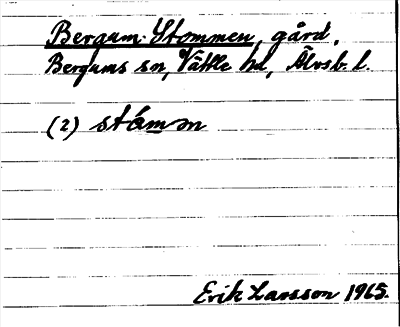 Bergum Stommen, gård,
Bergums sn, Vättle hd, Älvsb. l.
(2) ståmən
Erik Larsson 1965.